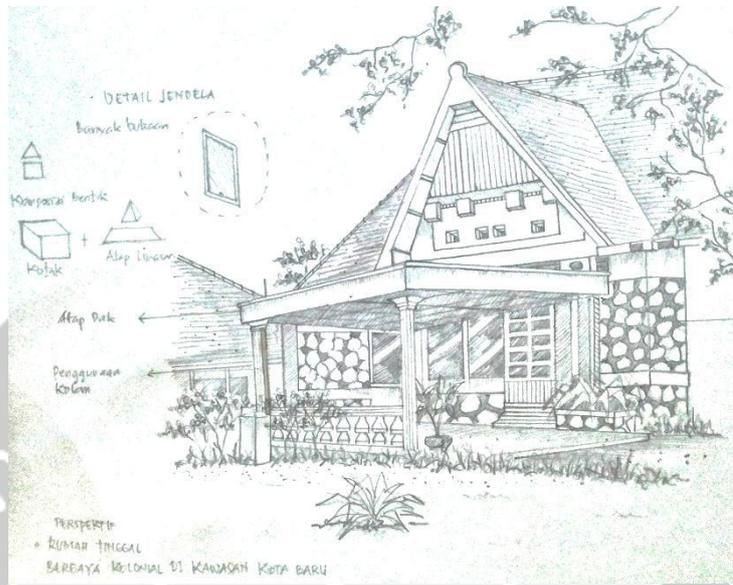 • DETAIL JENDELA
Banyak bukaan
Komposisi Bentuk
+
Kotak
Atap Limasan
Atap Dak
Penggunaan
Kolom
PERSPEKTIF
• RUMAH TINGGAL
BERGAYA KOLONIAL DI KAWASAN KOTA BARU